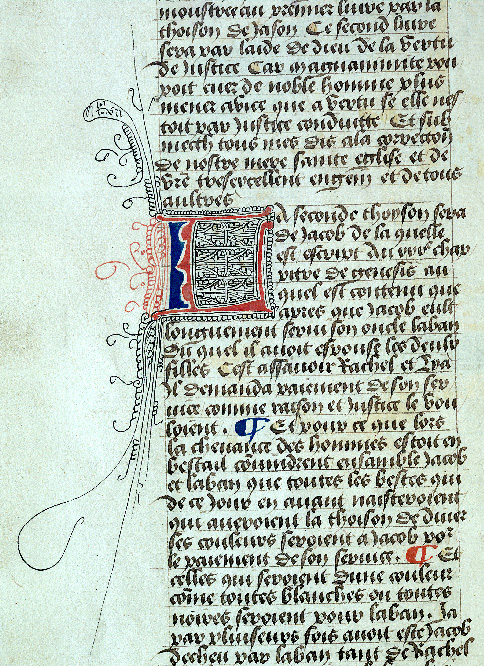 moustree au premier livre par la
thoison de Jason Ce second livre
sera par laide de dieu de la vertu
de Justice Car magnanimite pou
roit en de noble homme plus
mener a vice que a vertu se elle nest
tout par Justice conduitte Et sub
mecth tous mes dis a la correction
de nostre mere sainte eglise et de
vre tresexcellent engem et de tous
aultres
La seconde thoyson sera
de Jacob de la quelle
est escript Au xxxe chap
pitre de genesis au
quel est contenu que
apres que Jacob eult
longuement servi son oncle laban
Du quel il avoit espouse les deulx
filles Cest assavoir Rachel et Lya
Il demanda paiement de son ser
vice comme raison et Justice le vou
loient . ¶ Et pour ce que lors
la chevance des hommes estoit en
bestail convindrent ensamble Jacob
et laban que toutes les bestes qui
de ce Jour en avant naisteroient
qui averoient la thoison de diver
ses couleurs seroient a Jacob por
le paiement de son service . ¶ Et
celles qui seroient dune couleur
come toutes blanches ou toutes
noires seroient pour laban . Ja
par pluiseurs fois avoit este Jacob
decheu par laban tant de Rachel